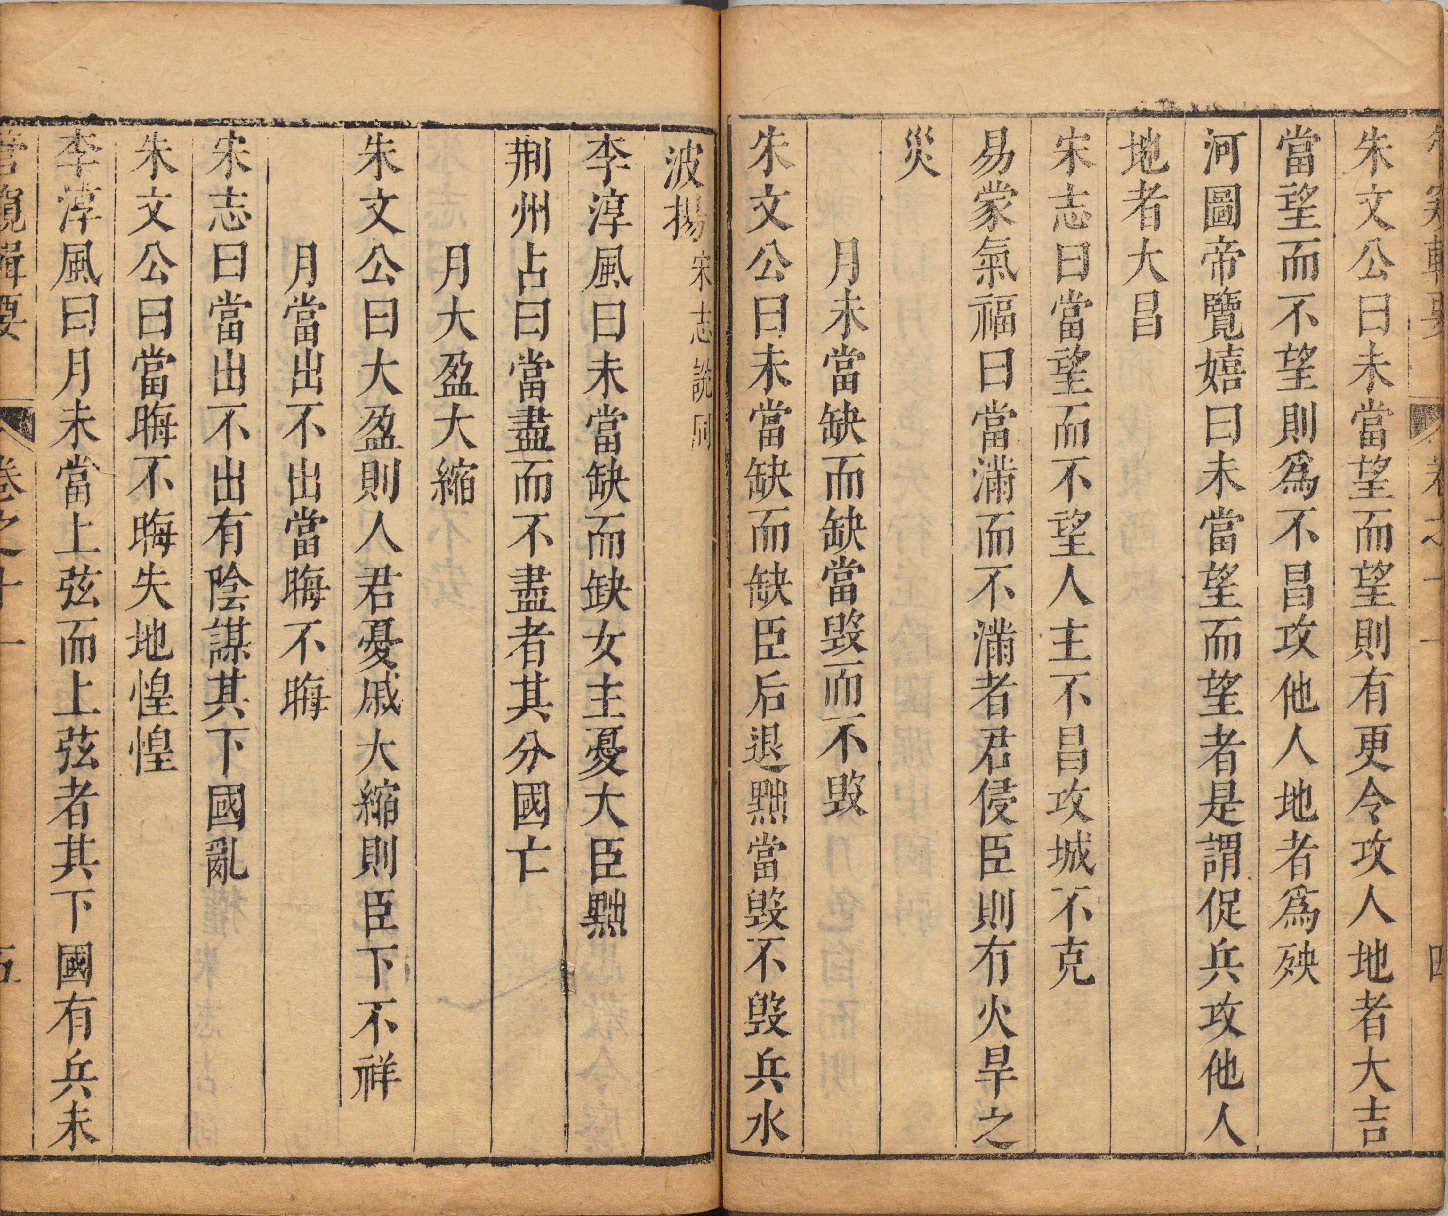 朱文公曰未當望而望則有更令攻人地者大吉
當望而不望則爲不昌攻他人地者爲殃
河圖帝覽嬉曰未當望而望者是謂促兵攻他人
地者大昌
宋志曰當望而不望人主不昌攻城不克
易蒙氣福曰當滿而不滿者君侵臣則有火旱之
災
月未當缺而缺當毀而不毀
朱文公曰未當缺而缺臣后退黜當毀不毀兵水
波揚宋志說同
李淳風曰未當缺而缺女主憂大臣黜
荆州占曰當盡而不盡者其分國亡
月大盈大縮
朱文公曰大盈則人君憂戚大縮則臣下不祥
月當出不出當晦不晦
宋志曰當出不出有陰謀其下國亂
朱文公曰當晦不晦失地惶惶
李淳風曰月未當上弦而上弦者其下國有兵未
管窺輯要 卷之十一 五